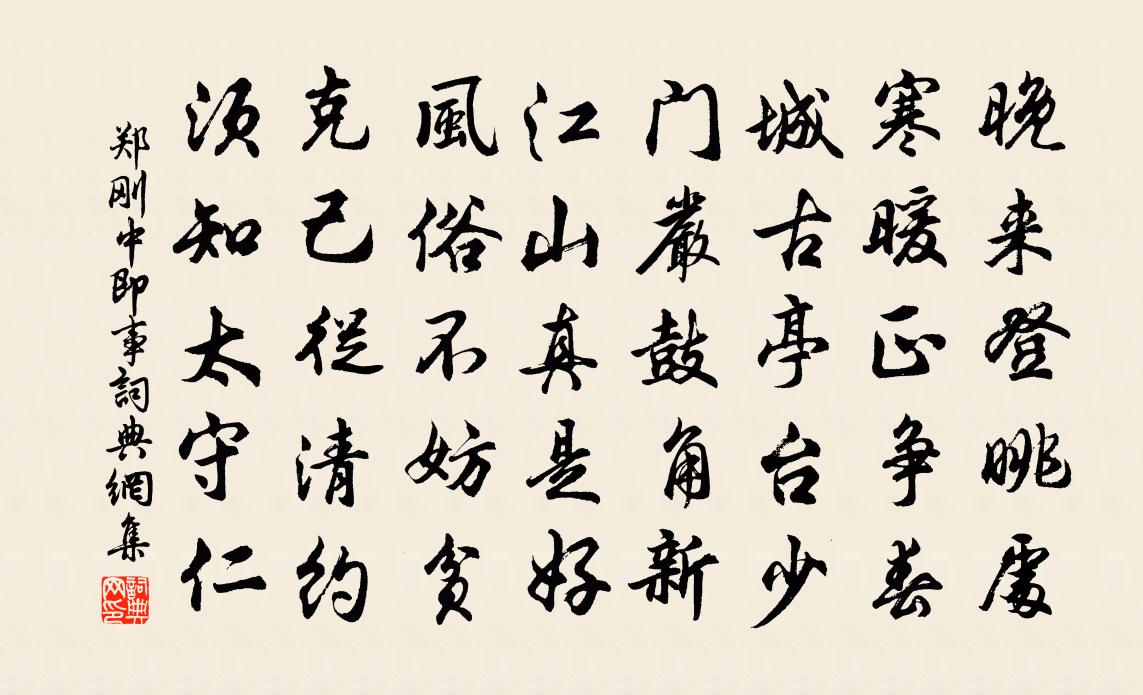 晚来登眺處
寒暖正争春
城古亭台少
门嚴鼓角新
江山真是好
風俗不妨貧
克己從清约
须知太守仁
郑刚中即事詞典網集
詞典网印